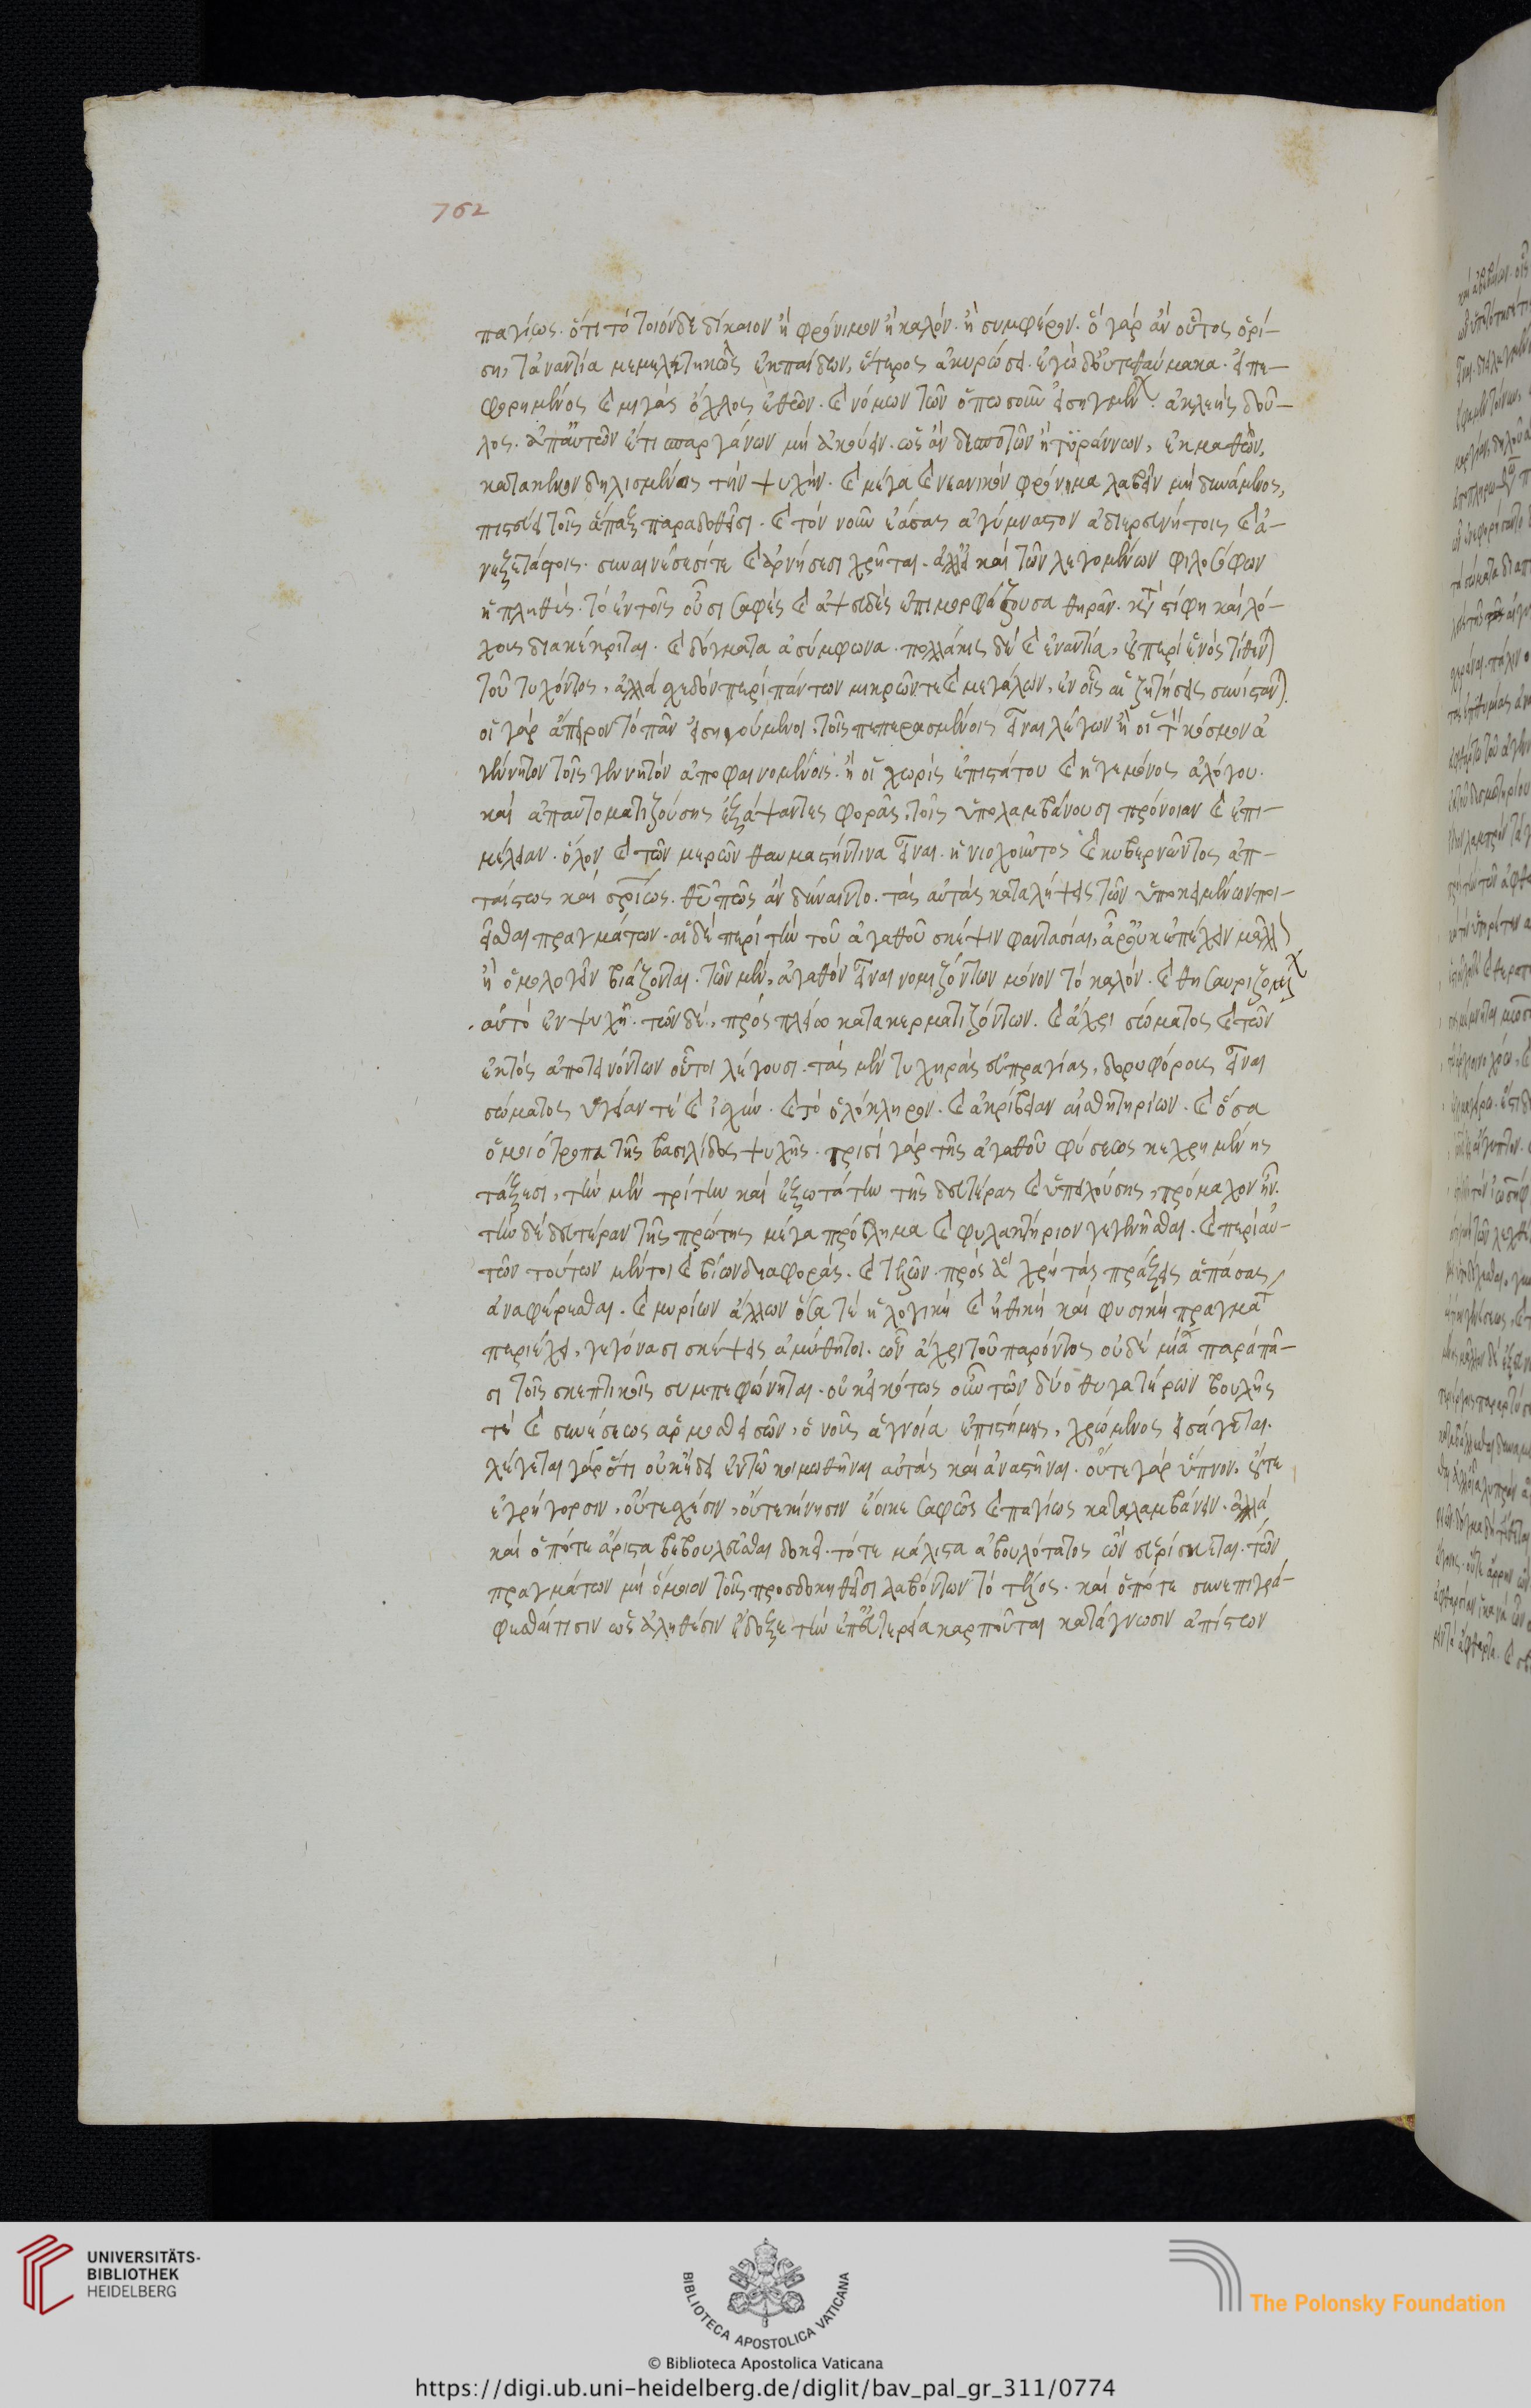 762
παγίως. ὅτι τὸ τοιόνδε δίκαιον ἢ φρόνιμον ἢ καλόν. ἢ συμφέρον. ὃ γὰρ ἂν οὗτος ὁρί-
ση, τἀναντία μεμελετηκὼς ἐκπαίδων, ἕτερος ἀκυρώσει. ἐγὼ δ' οὐ τεθαύμακα. εἰ πε-
φορημένος καὶ μιγὰς ὄχλος ἐθῶν. καὶ νόμων τῶν ὁπωσοῦν εἰσηγμένων. ἀκλεὴς δοῦ-
λος. ἀπαὐτῶν ἔτι σπαργάνων μὴ ἀκούειν. ὡς ἂν δεσποτῶν ἢ τυράννων, ἐκμαθὼν,
κατακενονδηλισμένος τὴν ψυχήν. καὶ μέγα καὶ νεανικόν φρόνημα λαβεῖν μὴ δυνάμενος,
πιστεύει τοῖς ἅπαξ παραδοθεῖσι. καὶ τὸν νοῦν ἐάσας ἀγύμναστον ἀδιερευνήτοις καὶ ἀ-
νεξετάστοις. συναινέσεσίτε καὶ ἀρνήσεσι χρῆται. ἀλλ' εἰ καὶ τῶν λεγομένων φιλοσόφων
ἡ πληθύς. τὸ ἐν τοῖς οὖσι σαφὲς καὶ ἀψευδὲς ἐπιμορφάζουσα θηρᾶν. κατὰ στίφη καὶ λό-
χους διακέκριται. καὶ δόγματα ἀσύμφωνα. πολλάκις δὲ καὶ ἐναντία, οὐ περὶ ἑνὸς τίθεται
τοῦ τυχόντος, ἀλλὰ σχεδὸν περὶ πάντων μικρῶν τε καὶ μεγάλων, ἐν οἷς αἱ ζητήσεις συνίστανται.
οἱ γὰρ ἄπειρον τὸ πᾶν εἰσηγούμενοι, τοῖς πεπερασμένοις εἶναι λέγων ἢ οἱ τὸν κόσμον ἀ
γένητον τοῖς γεννητὸν ἀποφαινομένοις. ἢ οἱ χωρὶς ἐπιστάτου καὶ ἡγεμόνος ἀλόγου.
καὶ ἀπαυτοματιζούσης ἐξάψαντες φορᾶς, τοῖς ὑπολαμβάνουσι πρόνοιαν καὶ ἐπι-
μέλειαν. ὅλου καὶ τῶν μερῶν θαυμαστήν τινα εἶναι. ἡνιοχοῦντος καὶ κυβερνῶντος ἀπ-
ταίστως καὶ σωτηρίως. θεοῦ πῶς ἂν δύναιντο. τὰς αὐτὰς καταλήψεις τῶν ὑποκειμένων ποι-
εῖσθαι πραγμάτων. αἱ δὲ περὶ τὴν τοῦ ἀγαθοῦ σκέψιν φαντασίαι, ἆρ' οὐκ ἐπέχειν μᾶλλον
ἢ ὁμολογεῖν βιάζονται. τῶν μὲν, ἀγαθὸν εἶναι νομιζόντων μόνον τὸ καλόν. καὶ θησαυριζομένων
αὐτὸ ἐν ψυχῆ. τῶν δὲ, πρὸς πλείω κατακερματιζόντων. καὶ ἄχρι σώματος καὶ τῶν
ἐκτὸς ἀποτεινόντων οὗτοι λέγουσι. τὰς μὲν τυχηρὰς εὐπραγίας, δορυφόρους εἶναι
σώματος ὑγείαν τὲ καὶ ἰσχύν. καὶ τὸ ὁλόκληρον. καὶ ἀκρίβειαν αἰσθητηρίων. καὶ ὅσα
ὁμοιότροπα τῆς βασιλίδος ψυχῆς. τρισὶ γὰρ τῆς ἀγαθοῦ φύσεως κεχρημένης
τάξεσι, τὴν μὲν τρίτην καὶ ἐξωτάτω τῆς δευτέρας καὶ ὑπειχούσης, πρόμαχον ἦν.
τὴν δὲ δευτέραν τῆς πρώτης μέγα πρόβλημα καὶ φυλακτήριον γεγενῆσθαι. καὶ περὶ αὐ-
τῶν τούτων μέντοι καὶ βίων διαφορᾶς. καὶ τελῶν. πρὸς ἃ χρὴ τὰς πράξεις ἁπάσας
ἀναφέρεσθαι. καὶ μυρίων ἄλλων ὅσα τὲ ἡ λογικὴ καὶ ἠθικὴ καὶ φυσικὴ πραγματεία
περιέχει, γεγόνασι σκέψεις ἀμύθητοι. ὧν ἄχρι τοῦ παρόντος οὐδὲ μία παράπᾶ-
σι τοῖς σκεπτικοῖς συμπεφώνηται. οὐκ εἰκότως οὖν τῶν δύο θυγατέρων βουλῆς
τὲ καὶ συνέσεως ἁρμοσθεισῶν, ὁ νοῦς ἀγνοία ἐπιστήμης, χρώμενος εἰσάγεται.
λέγεται γὰρ ὅτι οὐκ ἤδει ἐν τῶ κοιμωθῆναι αὐτὰς καὶ ἀναστῆναι. οὔτε γὰρ ὕπνον, οὔτε
ἐγρήγορσιν, οὔτε σχέσιν, οὔτε κίνησιν ἔοικε σαφῶς καὶ παγίως καταλαμβάνειν. ἀλλὰ
καὶ ὁπότε ἄριστα βεβουλεῦσθαι δοκεῖ. τότε μάλιστα ἀβουλότατος ὢν εὑρίσκεται. τῶν
πραγμάτων μὴ ὅμοιον τοῖς προσδοκηθεῖσι λαβόντων τὸ τέλος. καὶ ὁπότε συνεπιγρά-
φεσθαί τισιν ὡς ἀληθέσιν ἔδοξε τὴν ἐπ' εὐχερεία καρποῦται κατάγνωσιν ἀπίστων
UNIVERSITÄTS-
BIBLIOTHEK
HEIDELBERG
BIBLIOTECA APOSTOLICA VATICANA
The Polonsky Foundation
© Biblioteca Apostolica Vaticana
https://digi.ub.uni-heidelberg.de/diglit/bav_pal_gr_311/0774